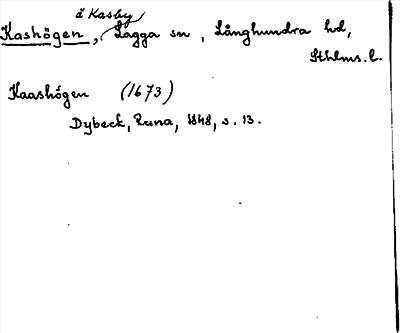 å Kasby
Kashögen, Lagga sn, Långhundra hd,
Sthlms. l.
Kaashögen (1673)
Dybeck, Runa, 1848, s. 13.